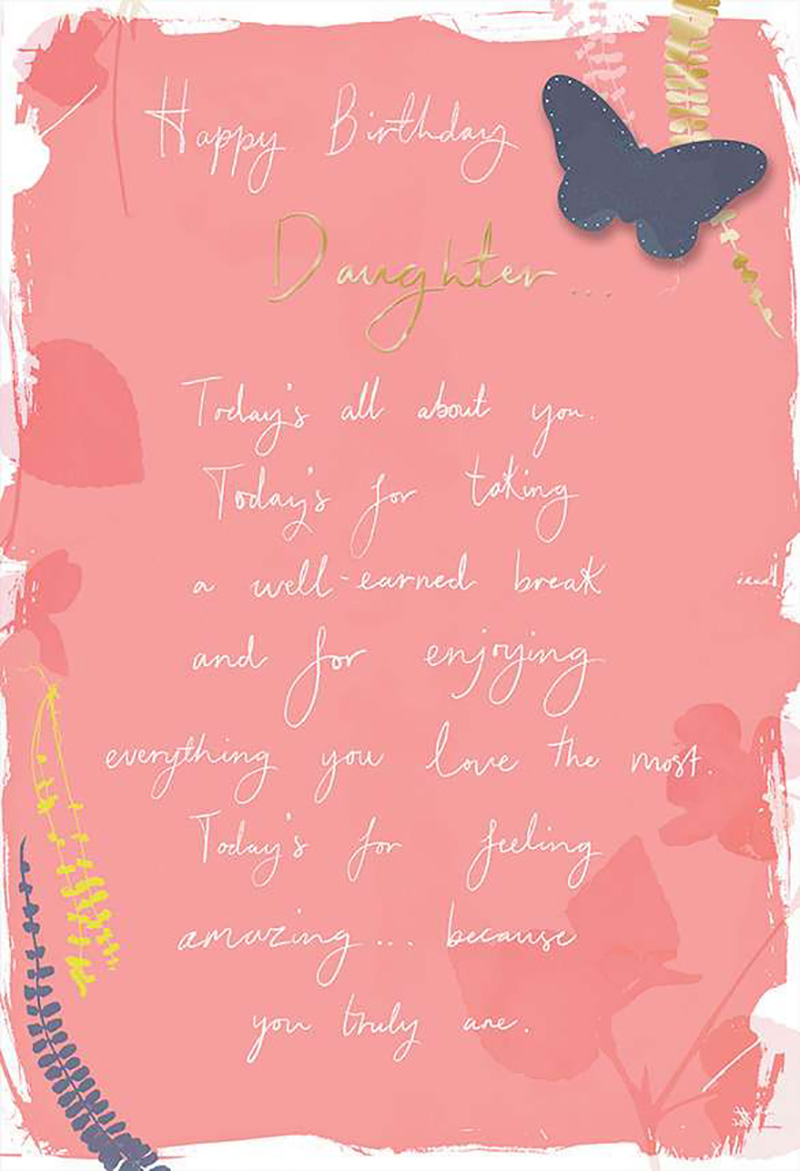 Happy Birthday
Daughter...
Today's all about you.
Today's for taking
a well-earned break
and for enjoying
everything you love the most.
Today's for feeling
amazing... because
you truly are.